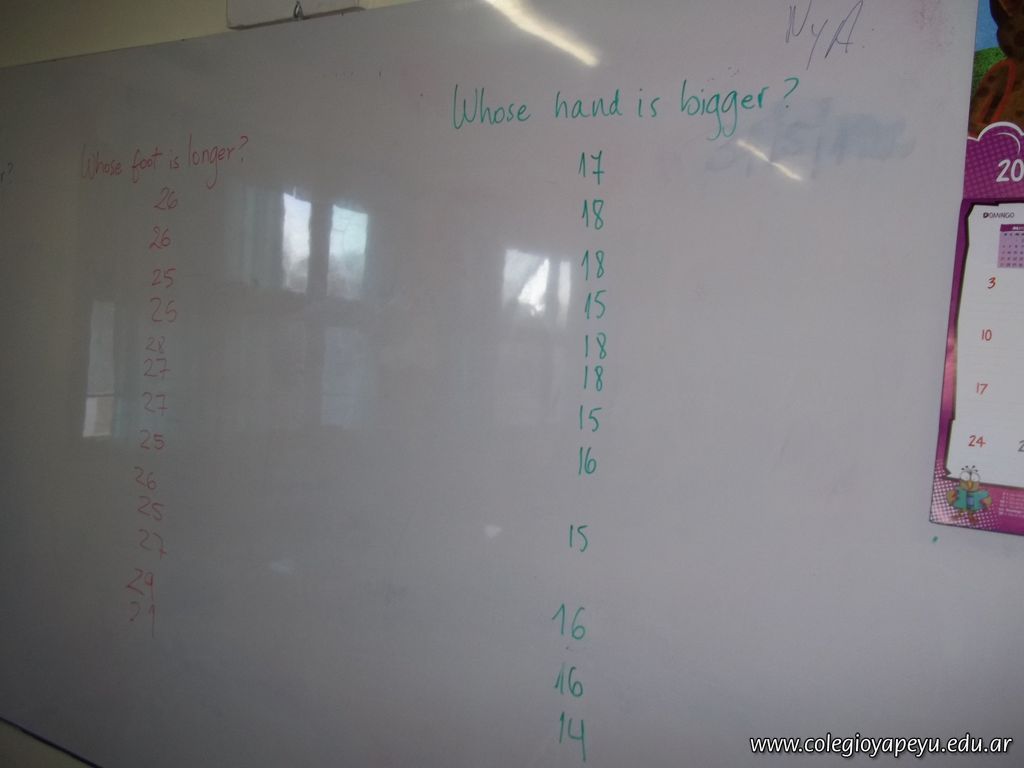 NyA.
Whose foot is longer?
26
26
25
25
28
27
27
25
26
25
27
29
Whose hand is bigger?
17
18
18
15
18
18
15
16
15
16
16
14
20
DOMINGO
3
10
17
24
www.colegioyapeyu.edu.ar